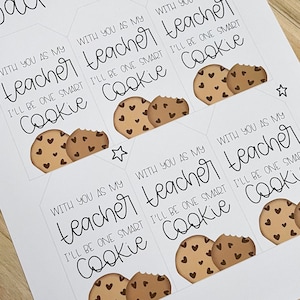 WITH YOU AS MY
teacher
I'LL BE ONE SMART
COOKIE
WITH YOU AS MY
teacher
I'LL BE ONE SMART
COOKIE
WITH YOU AS MY
teacher
I'LL BE ONE SMART
COOKIE
WITH YOU AS MY
teacher
I'LL BE ONE SMART
COOKIE
WITH YOU AS MY
teacher
I'LL BE ONE SMART
COOKIE
WITH YOU AS MY
teacher
I'LL BE ONE SMART
COOKIE